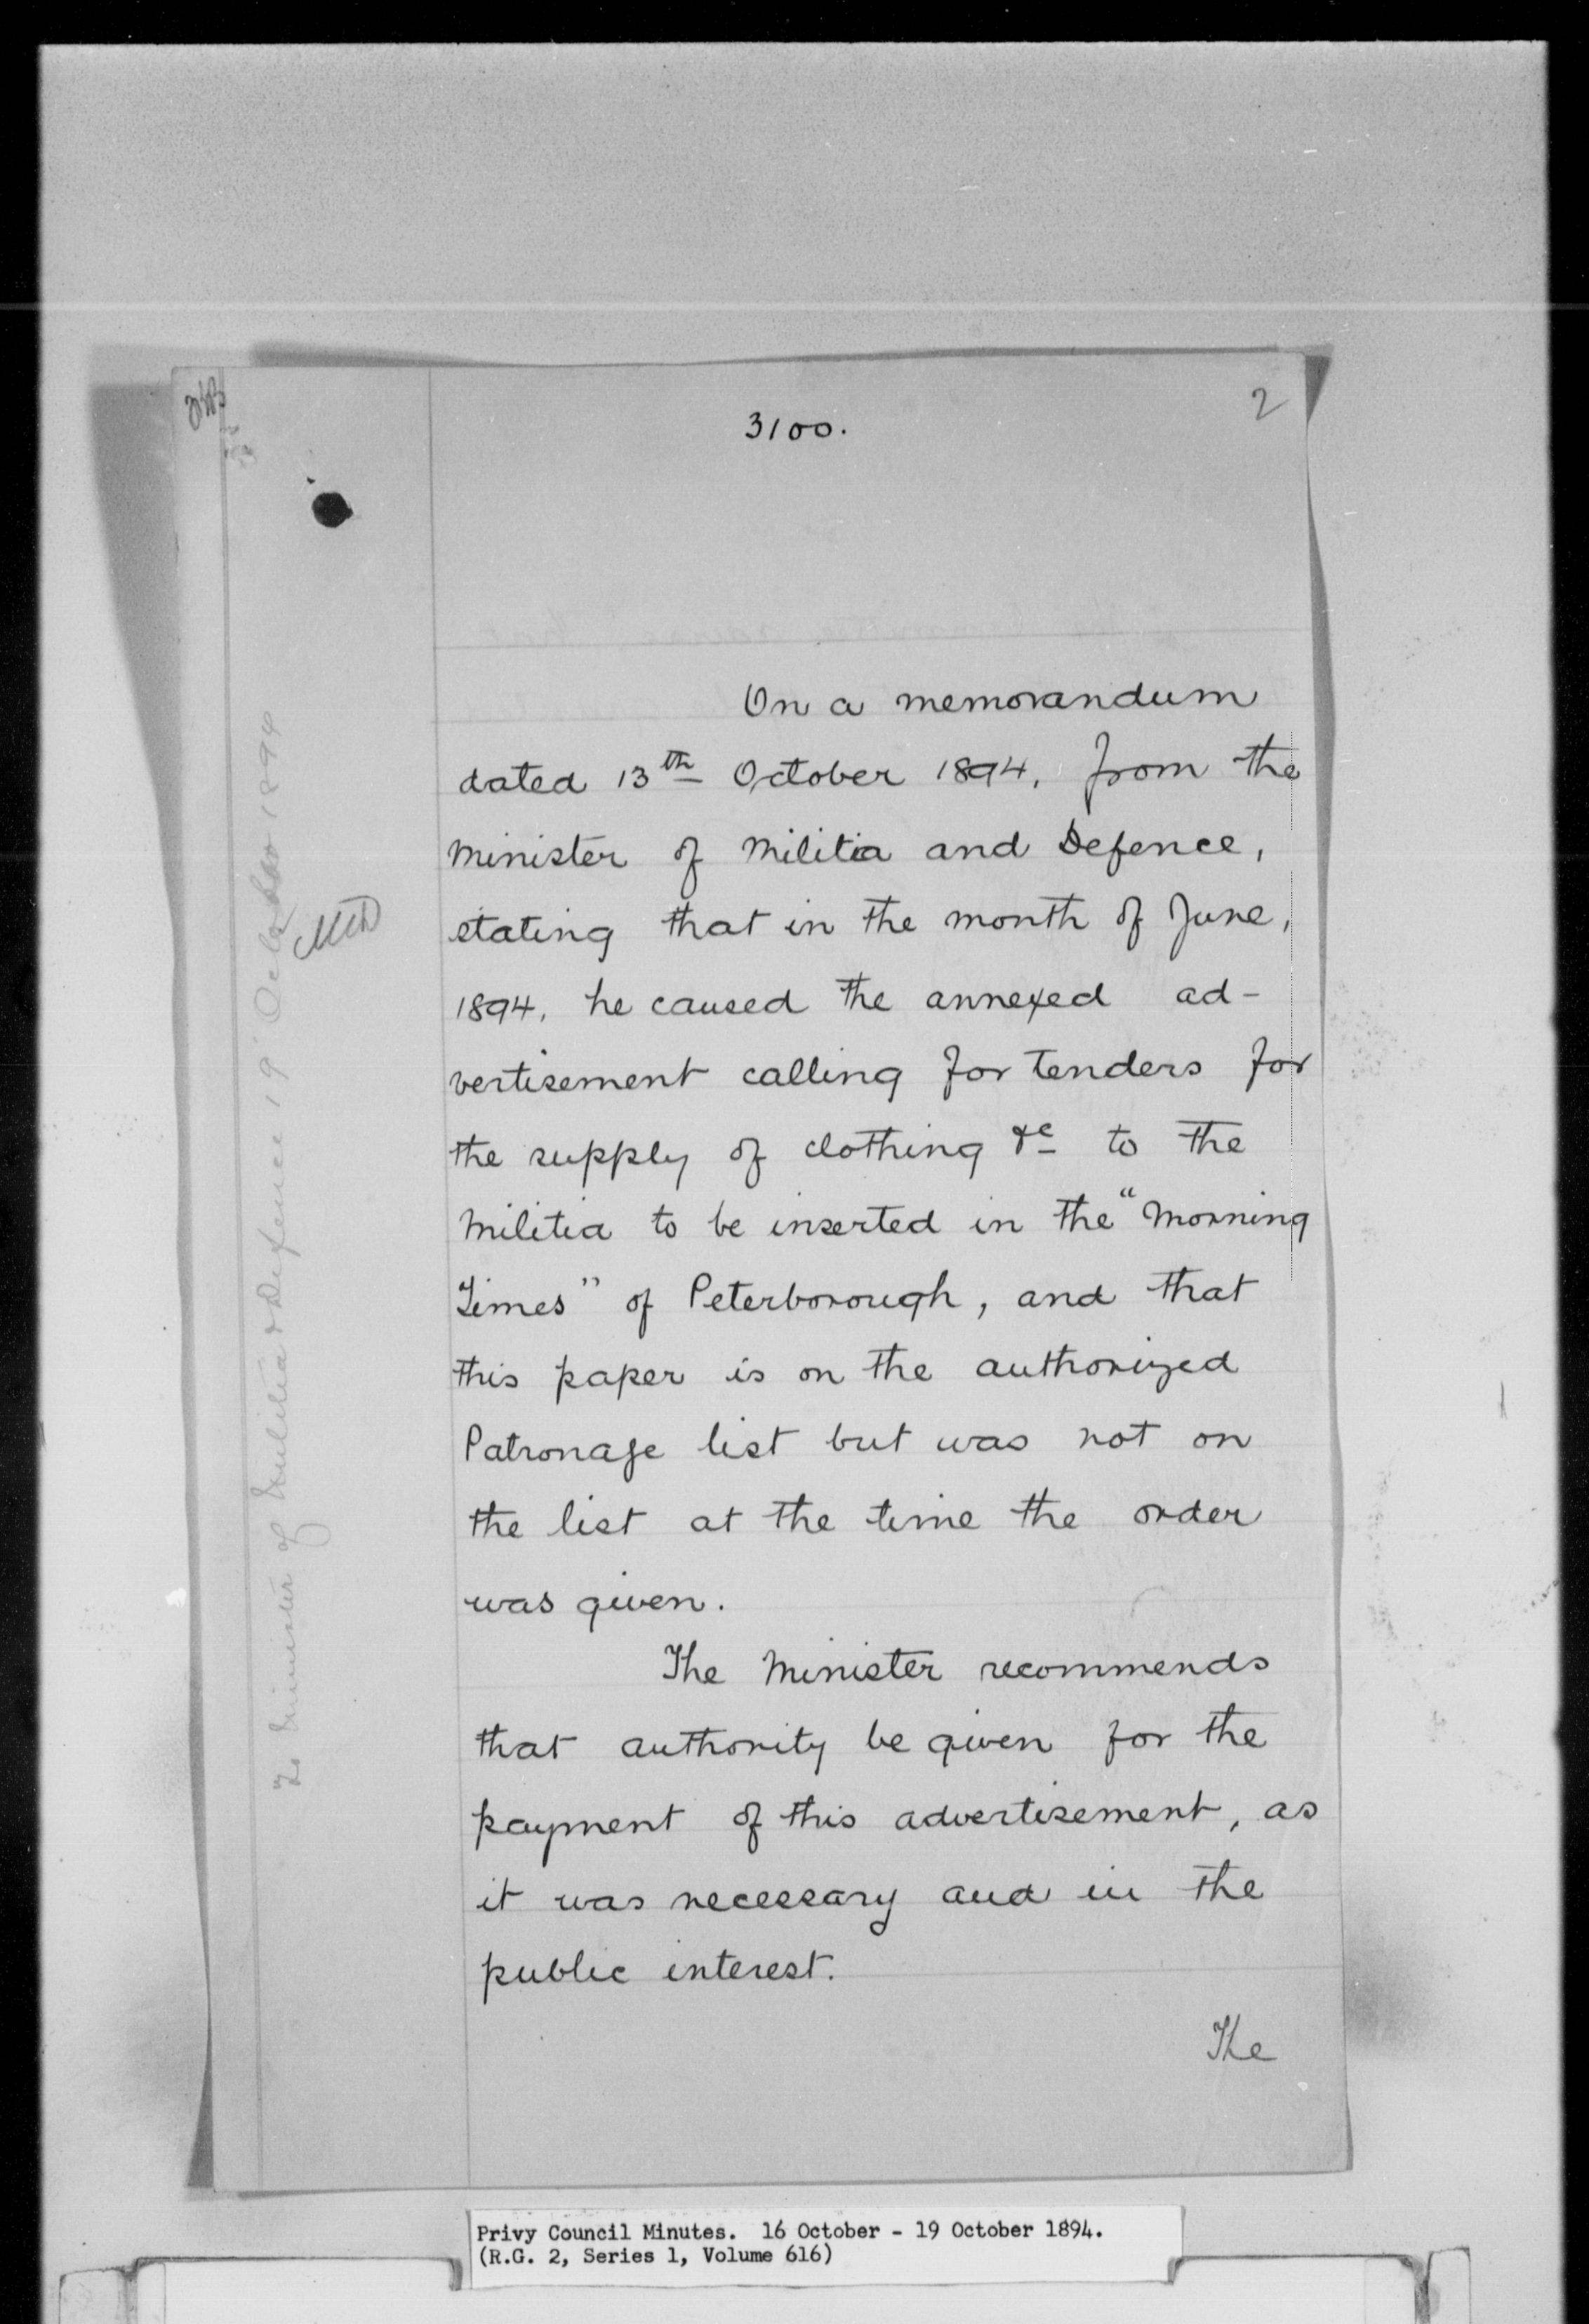 3100.
2
On a memorandum
dated 13th October 1894, from the
Minister of Militia and Defence,
stating that in the month of June,
1894, he caused the annexed ad-
vertisement calling for tenders for
the supply of clothing &c to the
Militia to be inserted in the "Morning
Times" of Peterborough, and that
this paper is on the authorized
Patronage list but was not on
the list at the time the order
was given.
The Minister recommends
that authority be given for the
payment of this advertisement, as
it was necessary and in the
public interest.
The
To Minister of Militia & Defence 19 October 1894
Privy Council Minutes. 16 October - 19 October 1894.
(R.G. 2, Series 1, Volume 616)